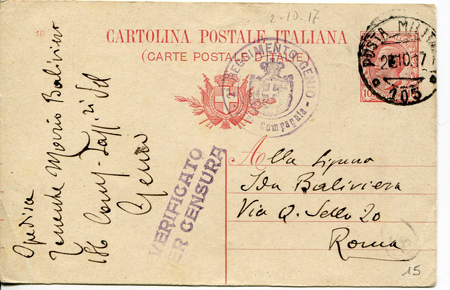 2-10.17
CARTOLINA POSTALE ITALIANA
(CARTE POSTALE D'ITALIE)
POSTA MILITARE
10.17
105
REGGIMENTO GENIO
Compagnia
VERIFICATO
PER CENSURA
Tenente Mario Balivino
186 Comp.
Genio
Alla Signora
Ida Baliviera
Via Q. Sella 20
Roma
15